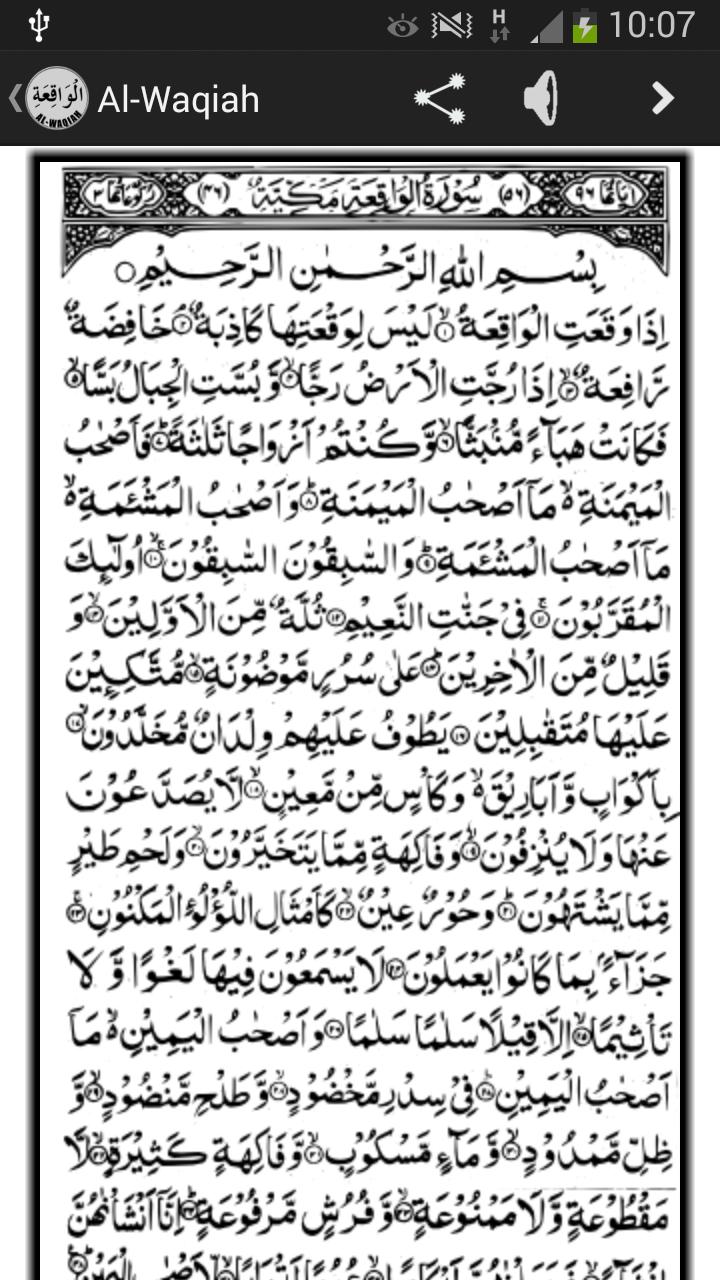 10:07
H
الْوَاقِعَة
AL-WAQIAH
Al-Waqiah
اٰيَاتُهَا ٩٦ (٥٦) سُوْرَةُ الْوَاقِعَةِ مَكِّيَّةٌ (٤٦) رُكُوْعَاتُهَا ٣
بِسْمِ اللهِ الرَّحْمٰنِ الرَّحِيْمِ
اِذَا وَقَعَتِ الْوَاقِعَةُ ۙ١ لَيْسَ لِوَقْعَتِهَا كَاذِبَةٌ ۘ٢ خَافِضَةٌ
رَّافِعَةٌ ۙ٣ اِذَا رُجَّتِ الْاَرْضُ رَجًّا ۙ٤ وَّ بُسَّتِ الْجِبَالُ بَسًّا ۙ٥
فَكَانَتْ هَبَآءً مُّنْۢبَثًّا ۙ٦ وَّ كُنْتُمْ اَزْوَاجًا ثَلٰثَةً ؕ٧ فَاَصْحٰبُ
الْمَيْمَنَةِ ۙ مَاۤ اَصْحٰبُ الْمَيْمَنَةِ ؕ٨ وَ اَصْحٰبُ الْمَشْئَمَةِ ۙ
مَاۤ اَصْحٰبُ الْمَشْئَمَةِ ؕ٩ وَ السّٰبِقُوْنَ السّٰبِقُوْنَ ۙ١٠ اُولٰٓئِكَ
الْمُقَرَّبُوْنَ ۚ١١ فِيْ جَنّٰتِ النَّعِيْمِ ١٢ ثُلَّةٌ مِّنَ الْاَوَّلِيْنَ ۙ١٣ وَ
قَلِيْلٌ مِّنَ الْاٰخِرِيْنَ ؕ١٤ عَلٰى سُرُرٍ مَّوْضُوْنَةٍ ۙ١٥ مُّتَّكِـِٕيْنَ
عَلَيْهَا مُتَقٰبِلِيْنَ ١٦ يَطُوْفُ عَلَيْهِمْ وِلْدَانٌ مُّخَلَّدُوْنَ ۙ١٧
بِاَكْوَابٍ وَّ اَبَارِيْقَ ۙ وَ كَاْسٍ مِّنْ مَّعِيْنٍ ۙ١٨ لَّا يُصَدَّعُوْنَ
عَنْهَا وَ لَا يُنْزِفُوْنَ ۙ١٩ وَ فَاكِهَةٍ مِّمَّا يَتَخَيَّرُوْنَ ۙ٢٠ وَ لَحْمِ طَيْرٍ
مِّمَّا يَشْتَهُوْنَ ؕ٢١ وَ حُوْرٌ عِيْنٌ ۙ٢٢ كَاَمْثَالِ اللُّؤْلُؤِ الْمَكْنُوْنِ ۚ٢٣
جَزَآءًۢ بِمَا كَانُوْا يَعْمَلُوْنَ ٢٤ لَا يَسْمَعُوْنَ فِيْهَا لَغْوًا وَّ لَا
تَاْثِيْمًا ۙ٢٥ اِلَّا قِيْلًا سَلٰمًا سَلٰمًا ٢٦ وَ اَصْحٰبُ الْيَمِيْنِ ۙ مَاۤ
اَصْحٰبُ الْيَمِيْنِ ؕ٢٧ فِيْ سِدْرٍ مَّخْضُوْدٍ ۙ٢٨ وَّ طَلْحٍ مَّنْضُوْدٍ ۙ٢٩ وَّ
ظِلٍّ مَّمْدُوْدٍ ۙ٣٠ وَّ مَآءٍ مَّسْكُوْبٍ ۙ٣١ وَّ فَاكِهَةٍ كَثِيْرَةٍ ۙ٣٢ لَّا
مَقْطُوْعَةٍ وَّ لَا مَمْنُوْعَةٍ ۙ٣٣ وَّ فُرُشٍ مَّرْفُوْعَةٍ ؕ٣٤ اِنَّاۤ اَنْشَاْنٰهُنَّ